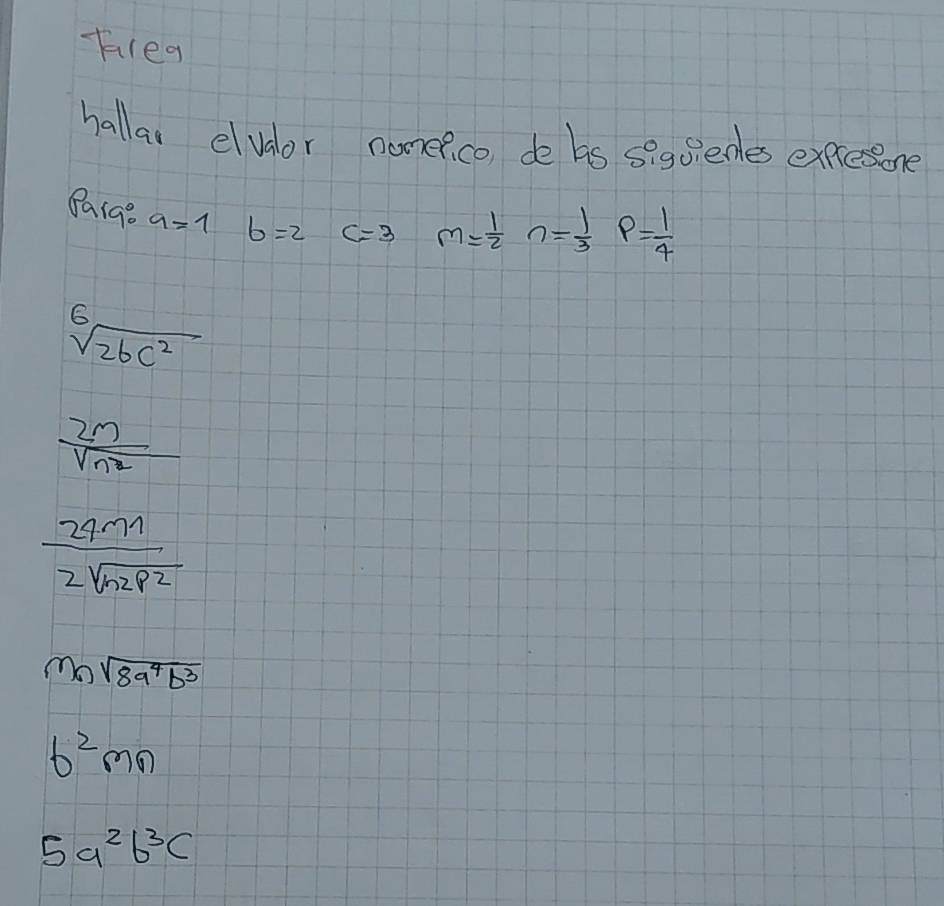 Tarea
hallar el valor numerico de las siguientes expresione
Para: a=1 b=2 c=3 m=1/2 n=1/3 P=1/4
⁶√2bc²
2m/√n²
24mn/2√n2P2
mn√8a⁴b³
b²mn
5a²b³c